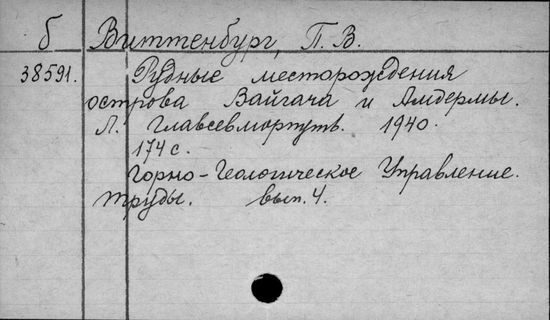 б Виттенбург, П. В.
38591. Рудные месторождения
острова Вайгача и Амдермы.
Л. Главсевморпуть. 1940.
174 с.
Горно-Геологическое Управление.
Труды. вып. 4.